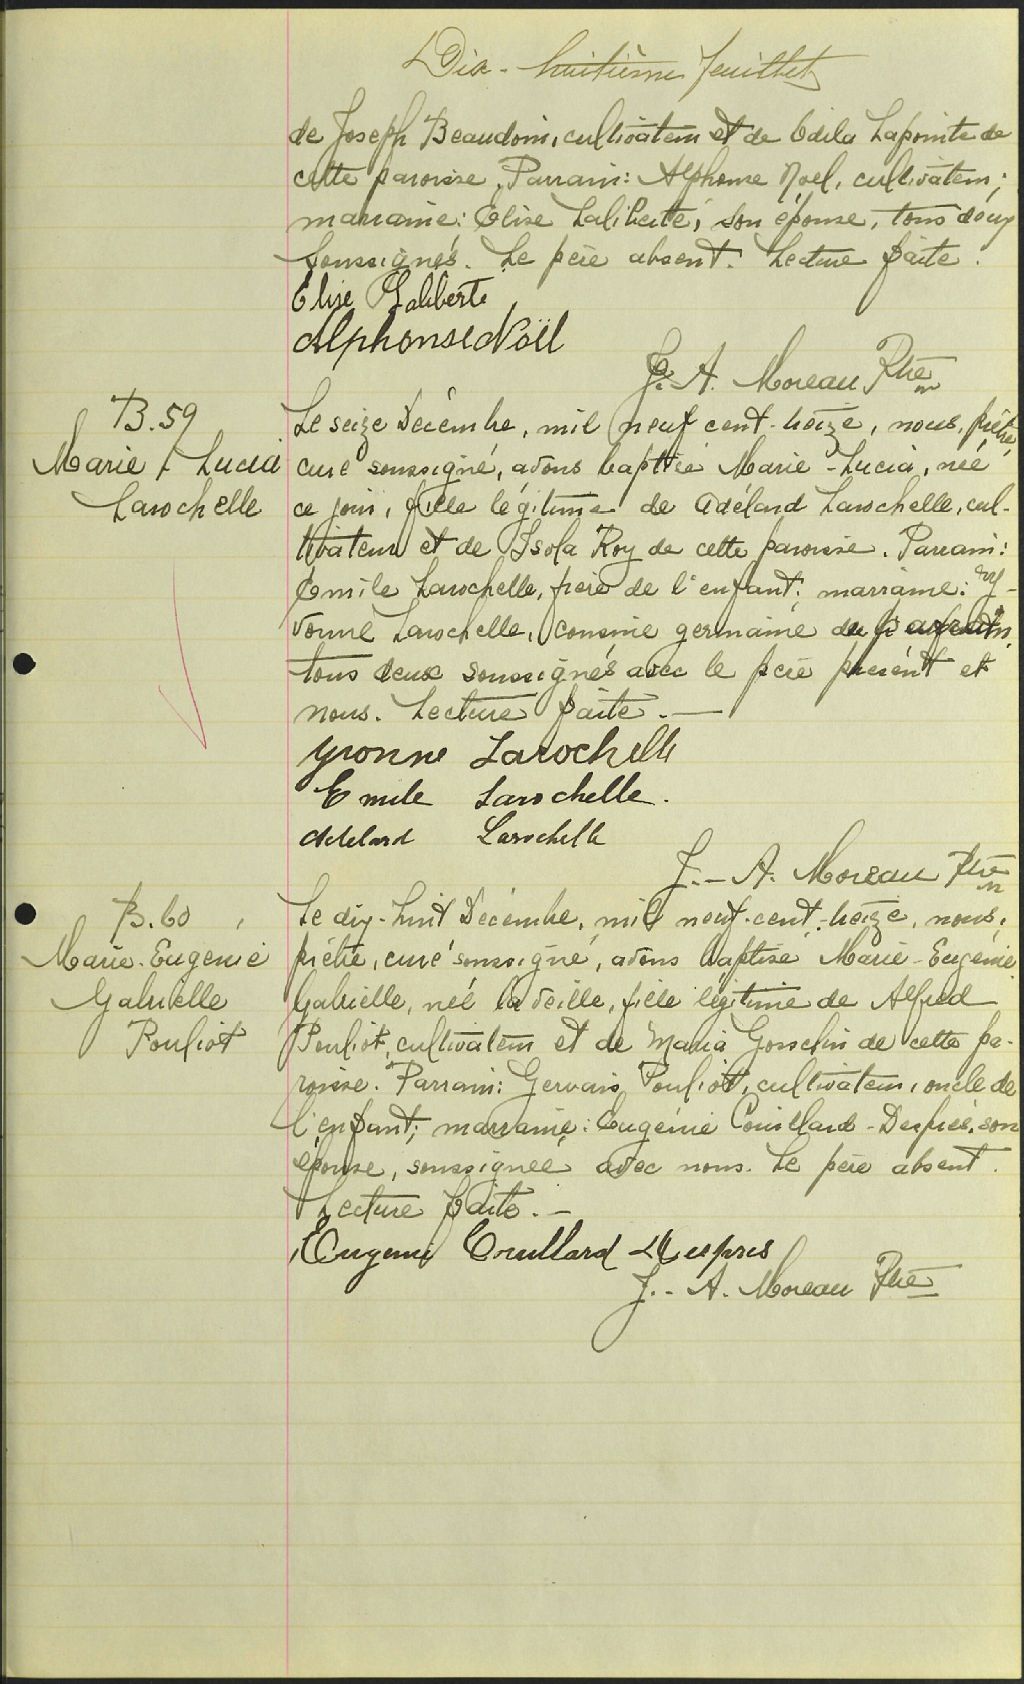 Dix-huitième feuillet
de Joseph Beaudoin, cultivateur et de Odila Lapointe de
cette paroisse. Parrain: Alphonse Noel, cultivateur;
marraine: Elise Laliberté, son épouse, tous deux
soussignés. Le père absent. Lecture faite.
Elise Laliberte
Alphonse Noël
J. A. Moreau Ptre
B. 59
Marie Lucia
Larochelle
Le seize Décembre, mil neuf cent-treize, nous, prêtre
curé soussigné, avons baptisé Marie-Lucia, née
ce jour, fille légitime de Adélard Larochelle, cul-
tivateur et de Isola Roy de cette paroisse. Parrain:
Emile Larochelle, frère de l'enfant; marraine: Y-
vonne Larochelle, cousine germaine de l'enfant,
tous deux soussignés avec le père présent et
nous. Lecture faite. —
Yvonne Larochelle
Emile Larochelle.
Adelard Larochelle
J.-A. Moreau Ptre
B. 60
Marie-Eugenie
Gabrielle
Pouliot
Le dix-huit Décembre, mil neuf-cent-treize, nous,
prêtre, curé soussigné, avons baptisé Marie-Eugénie
Gabrielle, née la veille, fille légitime de Alfred
Pouliot, cultivateur et de Maria Gosselin de cette pa-
roisse. Parrain: Gervais Pouliot, cultivateur, oncle de
l'enfant; marraine: Eugénie Couillard-Després, son
épouse, soussignée avec nous. Le père absent.
Lecture faite. —
Eugenie Couillard Despres
J.-A. Moreau Ptre